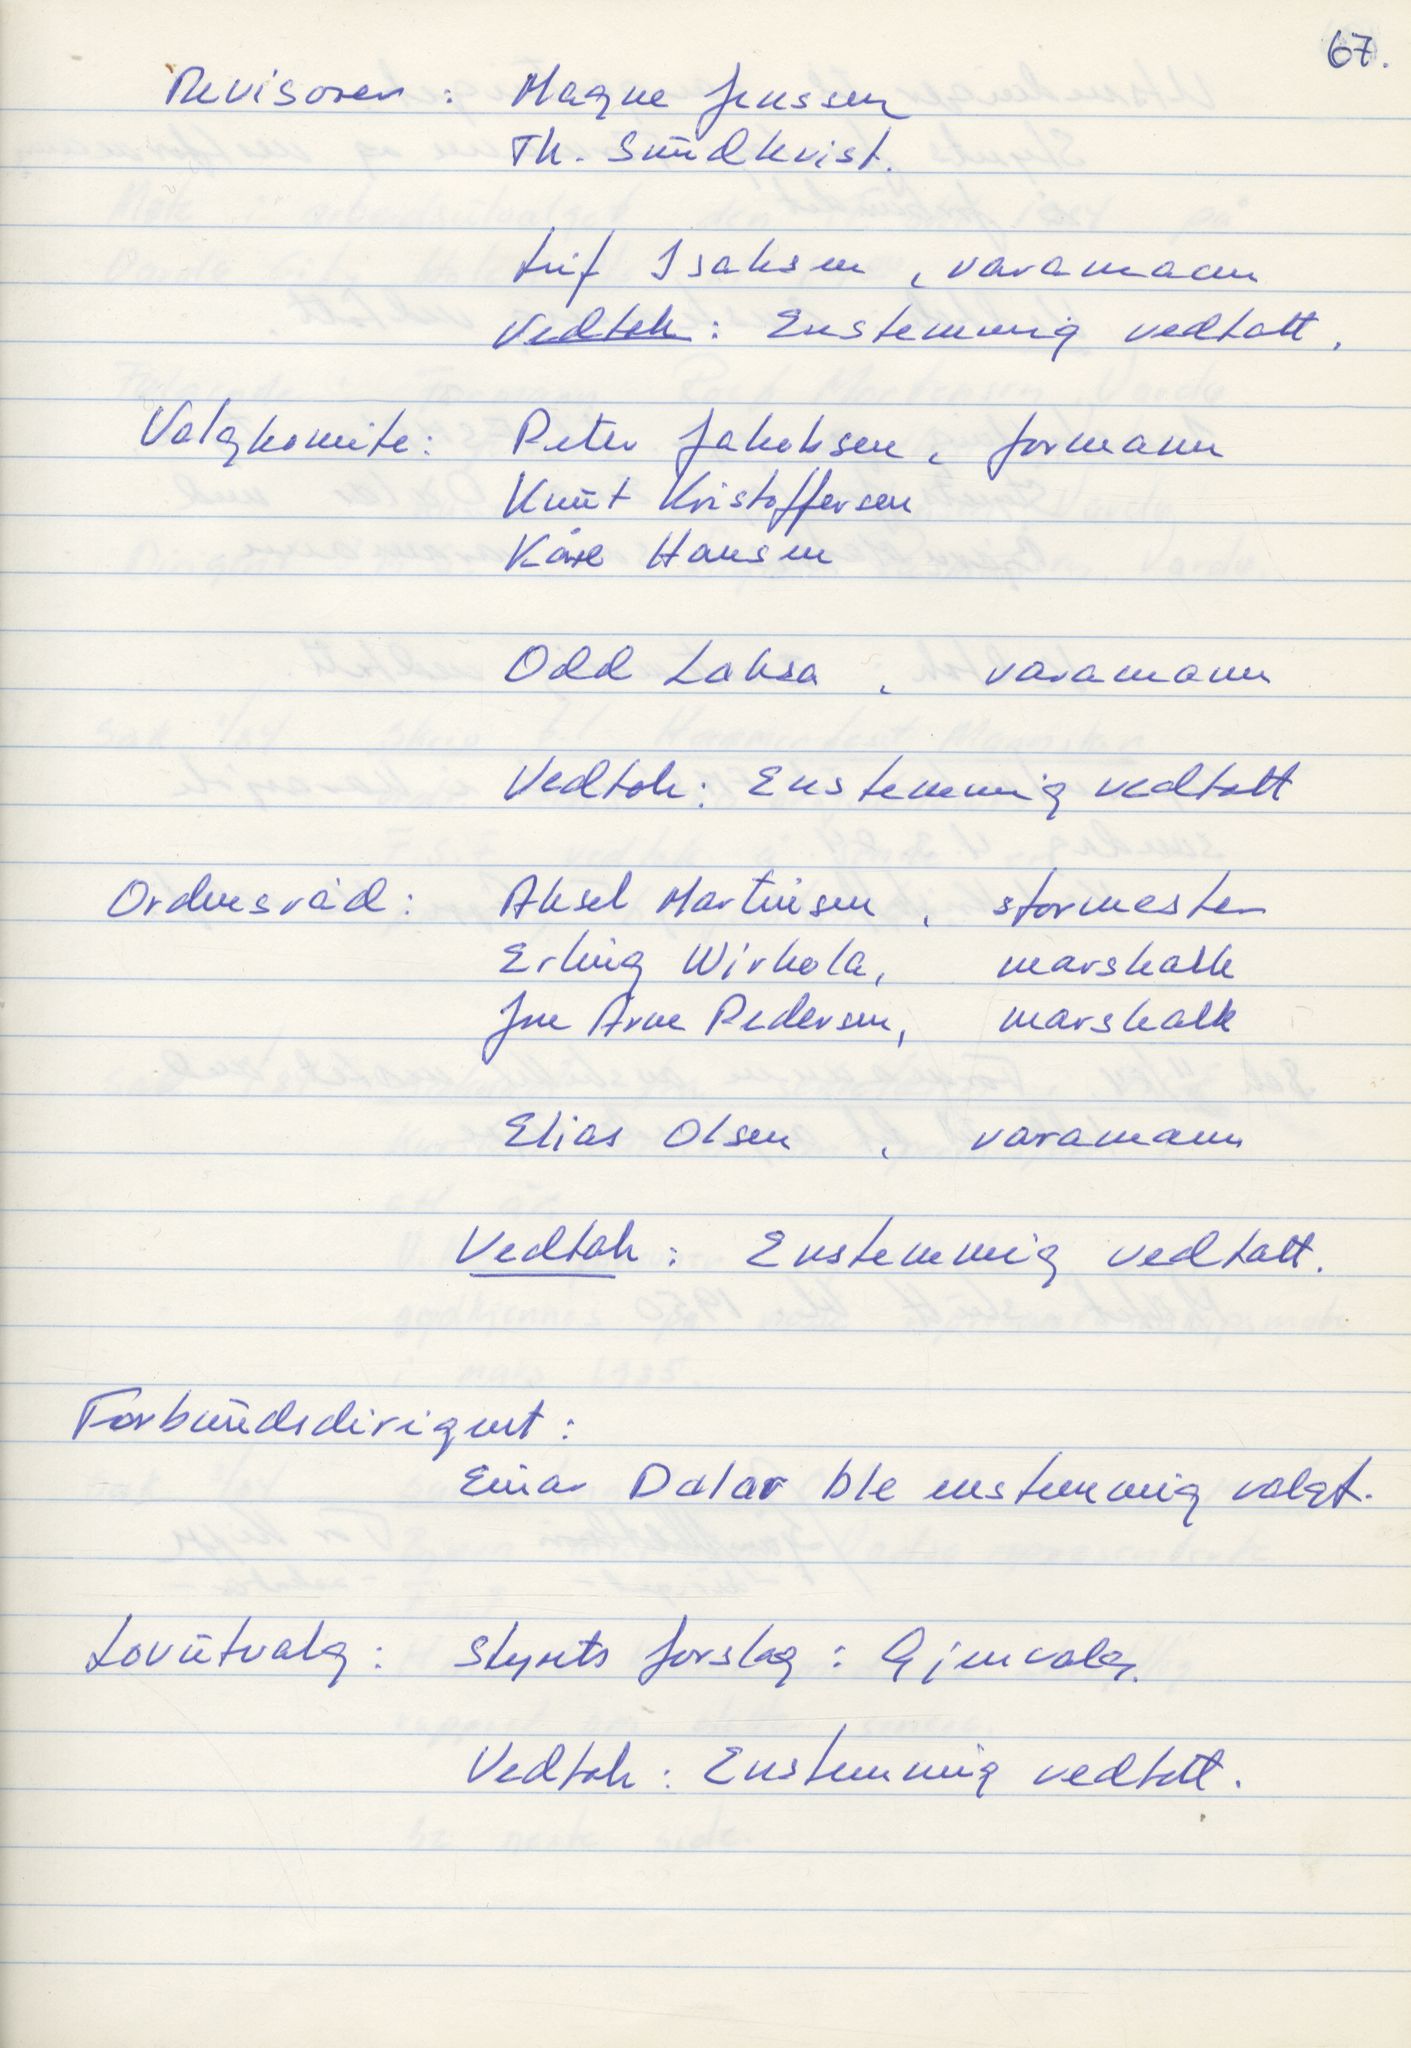 67.
Revisorer: Magne Jenssen
Th. Sundkvist.
Leif Isaksen, varamann
Vedtak: Enstemmig vedtatt.
Valgkomite: Peter Jakobsen, formann
Knut Kristoffersen
Kåre Hansen
Odd Laksa, varamann
Vedtak: Enstemmig vedtatt
Ordensråd: Aksel Martinsen, stormester
Erling Wirkola, marskalk
Jon Arne Pedersen, marskalk
Elias Olsen, varamann
Vedtak: Enstemmig vedtatt.
Forbundsdirigent:
Einar Dalar ble enstemmig valgt.
Lovutvalg: Styrets forslag: Gjenvalg.
Vedtak: Enstemmig vedtatt.